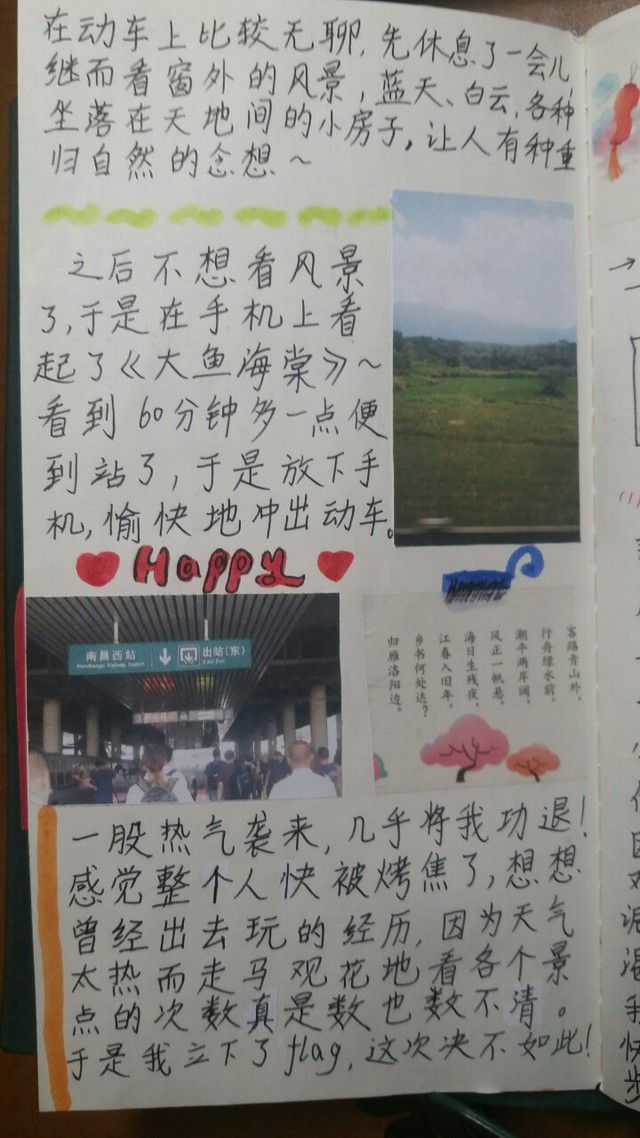 在动车上比较无聊,先休息了一会儿,
继而看窗外的风景,蓝天、白云,各种
坐落在天地间的小房子,让人有种重
归自然的念想~
之后不想看风景
了,于是在手机上看
起了《大鱼海棠》~
看到60分钟多一点便
到站了,于是放下手
机,愉快地冲出动车。
Happy
南昌西站
出站(东)
Nanchangxi Railway Station
East Exit
客路青山外,
行舟绿水前。
潮平两岸阔,
风正一帆悬。
海日生残夜,
江春入旧年。
乡书何处达?
归雁洛阳边。
一股热气袭来,几乎将我功退!
感觉整个人快被烤焦了,想想
曾经出去玩的经历,因为天气
太热而走马观花地看各个景
点的次数真是数也数不清。
于是我立下了flag,这次决不如此!